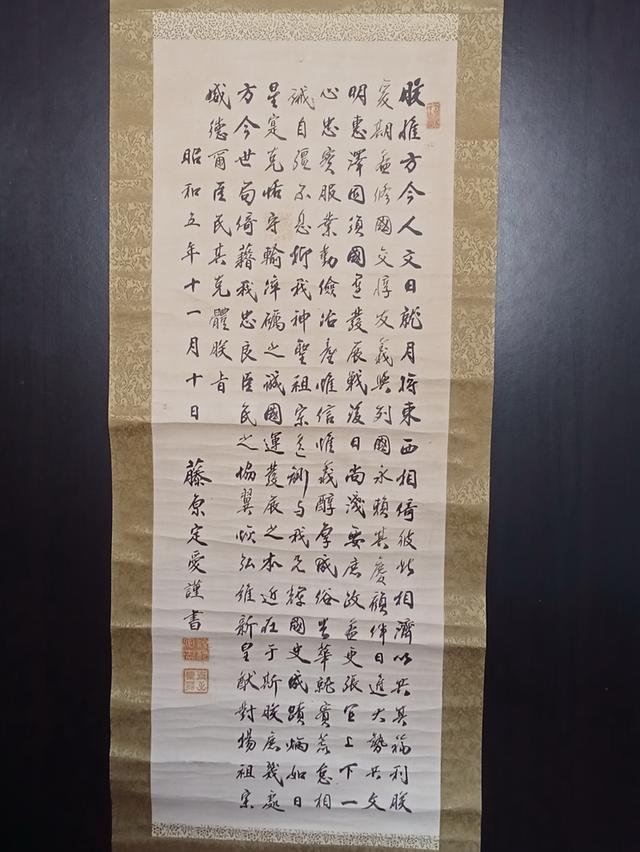 朕惟方今人文日就月將東西相倚彼此相濟以共其福利朕
爰期益修國交惇友義與列國永賴其慶顧伴日進大勢共文
明惠澤固須國運發展戰後日尚淺要庶政益更張宜上下一
心忠實服業勤儉治產惟信惟義醇厚成俗去華就實荒怠相
誡自彊不息抑我神聖祖宗遺訓与我光輝國史成蹟炳如日
星寔克恪守輸淬礪之誠國運發展之本近在于斯朕庶幾處
方今世局倚藉我忠良臣民之協翼恢弘維新皇猷對揚祖宗
威德爾臣民其克體朕旨
昭和五年十一月十日 藤原定愛謹書